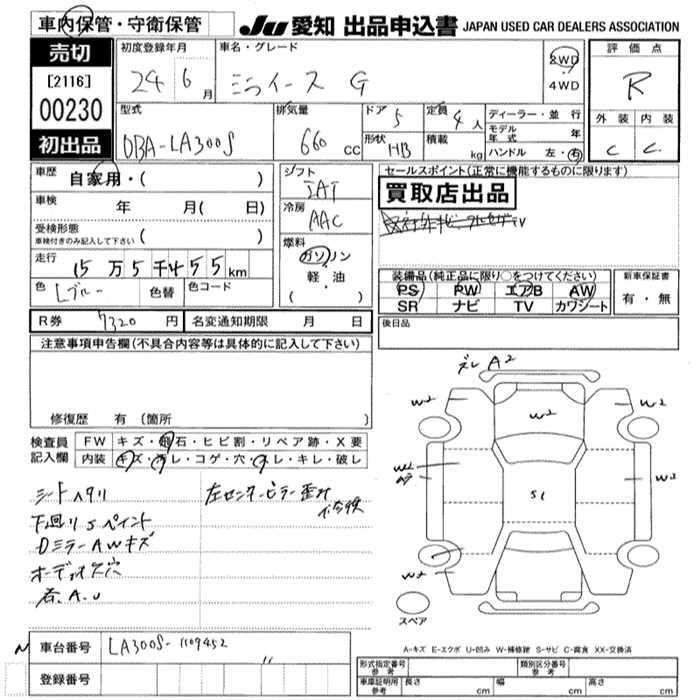 車内保管・守衛保管
JU 愛知 出品申込書 JAPAN USED CAR DEALERS ASSOCIATION
売切
[2116]
00230
初出品
初度登録年月
24 6月
車名・グレード
ミライース G
2WD
・
4WD
評価点
R
外装 内装
C C
型式
DBA-LA300S
排気量
660 cc
ドア 5
形状 HB
定員 4人
積載 kg
ディーラー・並行
モデル年式 年
ハンドル 左・右
車歴 自家用・( )
車検 年 月( 日)
受検形態
車検付きのみ記入して下さい ( )
走行 15万5千455km
色 Lブルー 色替 色コード
シフト
IAT
冷房
AAC
燃料
ガソリン
・
軽・油
( )
セールスポイント(正常に機能するものに限ります)
買取店出品
TV
装備品(純正品に限り○をつけてください)
PS PW エアB AW
SR ナビ TV カワシート
新車保証書
有・無
後日品
R券 7320円 名変通知期限 月 日
注意事項申告欄(不具合内容等は具体的に記入して下さい)
修復歴 有(箇所 )
検査員
記入欄
FW キズ・飛石・ヒビ割・リペア跡・X要
内装 キズ・汚レ・コゲ・穴・スレ・キレ・破レ
シートヘタリ
下回りSペイント
DミラーAWキズ
オーディオ欠穴
左センターピラー歪み
ズレ A2
W2
W2
W2
W2
W2
S1
スペア
A-キズ E-エクボ U-凹み W-補修跡 S-サビ C-腐食 XX-交換済
車台番号 LA300S-1109452
登録番号
形式指定番号
参考
類別区分番号
参考
車庫証明用
参考
長さ cm 幅 cm 高さ cm